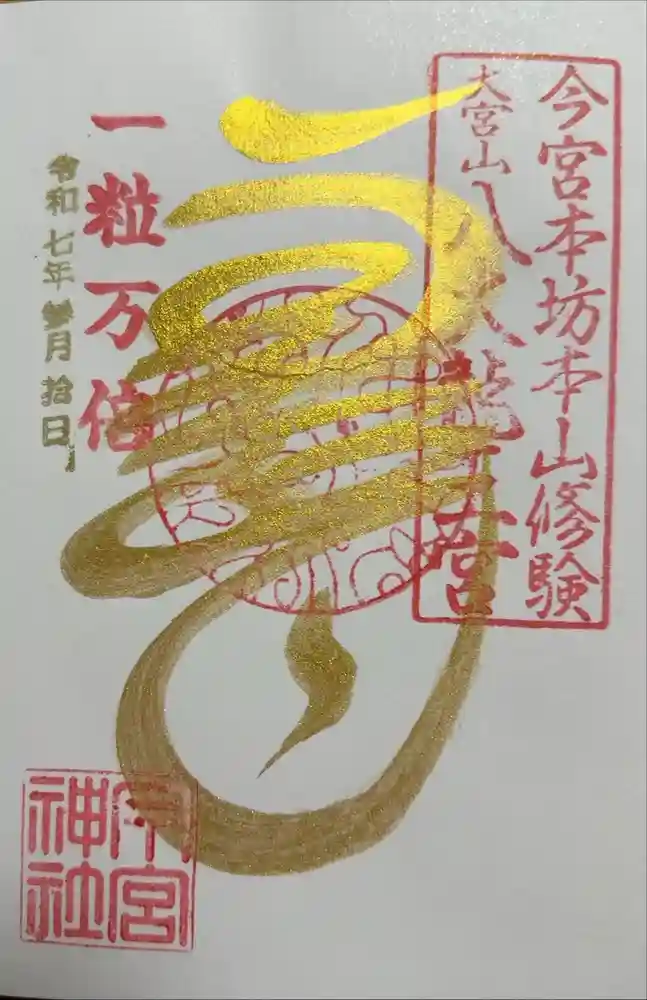 今宮本坊本山修験
大宮山八大龍王宮
一粒万倍
令和七年參月拾日
今宮
神社